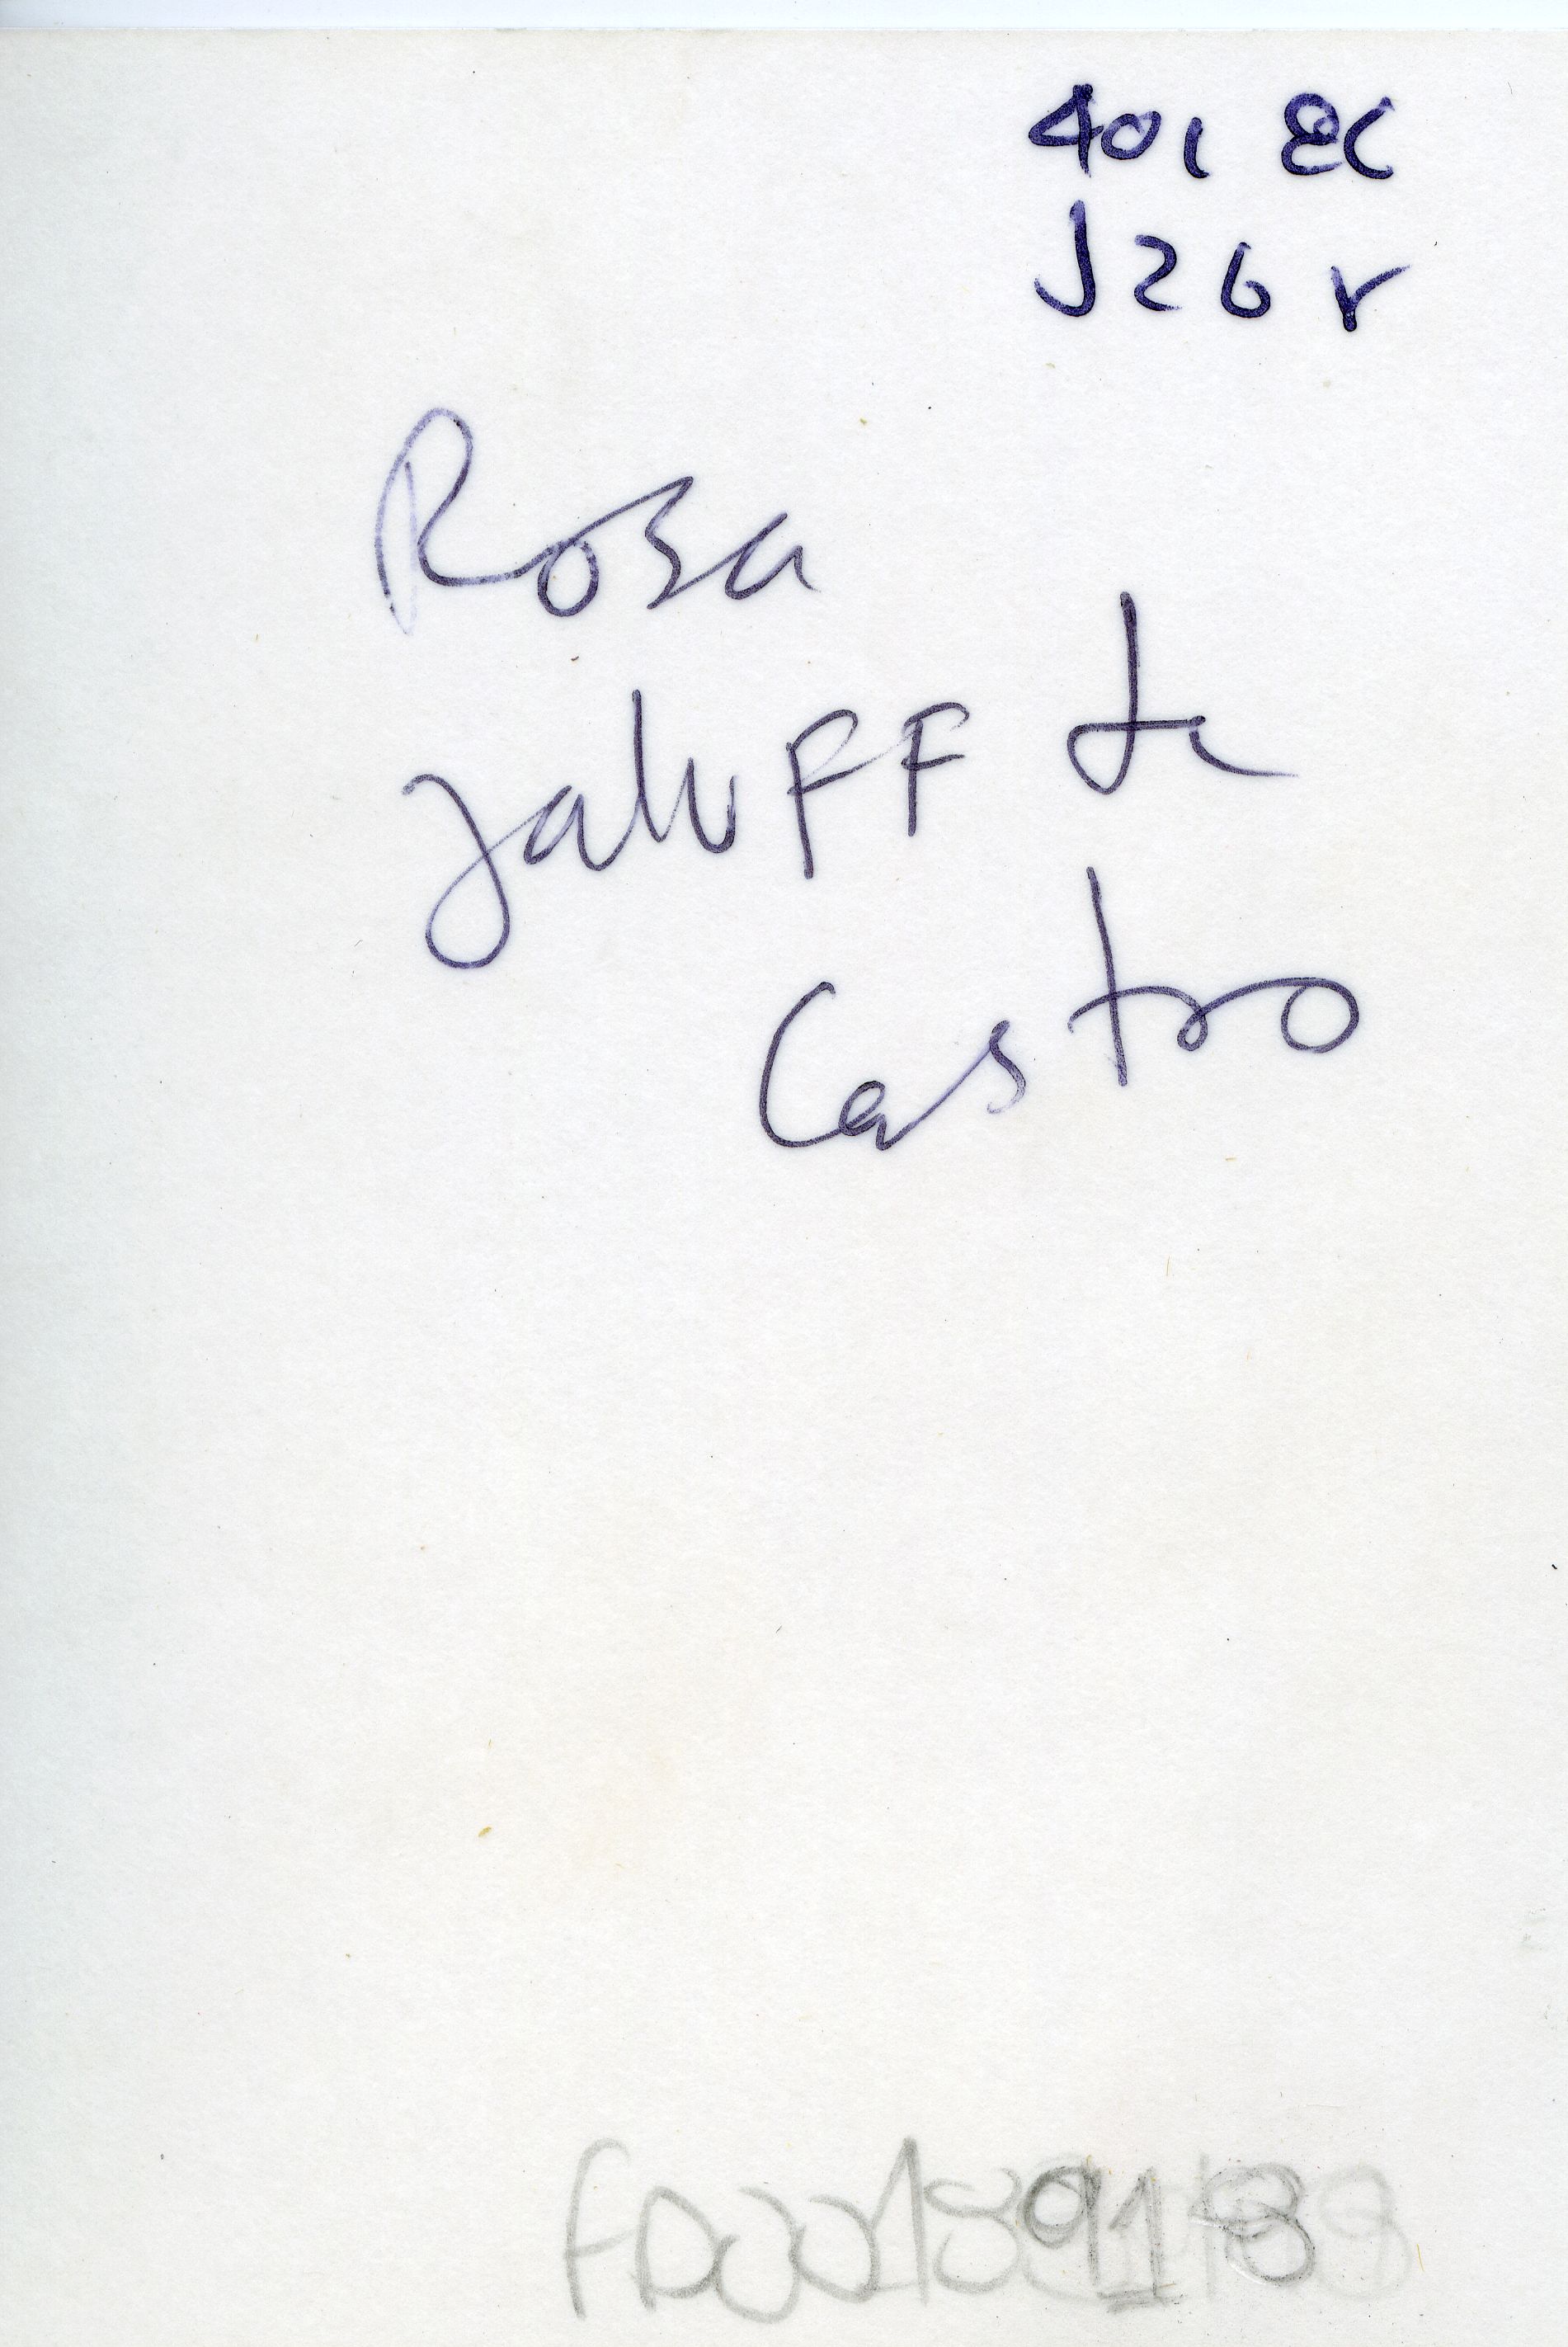 401 EC
J26r
Rosa
Jaluff de
Castro